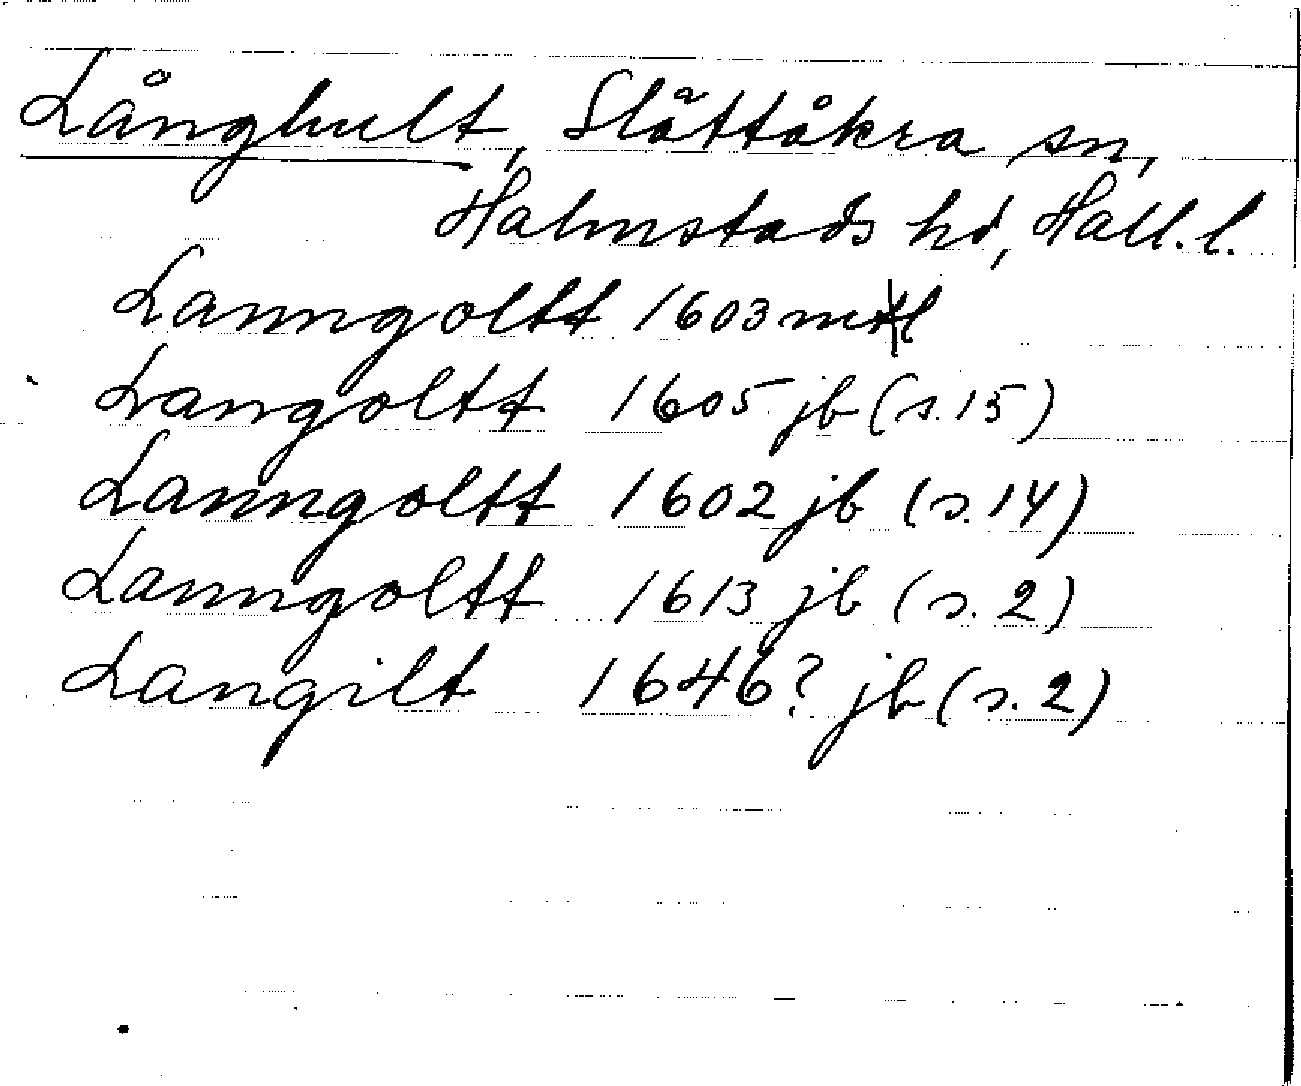 Långhult, Slättåkra sn,
Halmstads hd, Hall. l.
Lanngoltt 1603 mtl
Langoltt 1605 jb (s. 15)
Lanngoltt 1602 jb (s. 14)
Lanngoltt 1613 jb (s. 2)
Langilt 1646? jb (s. 2)